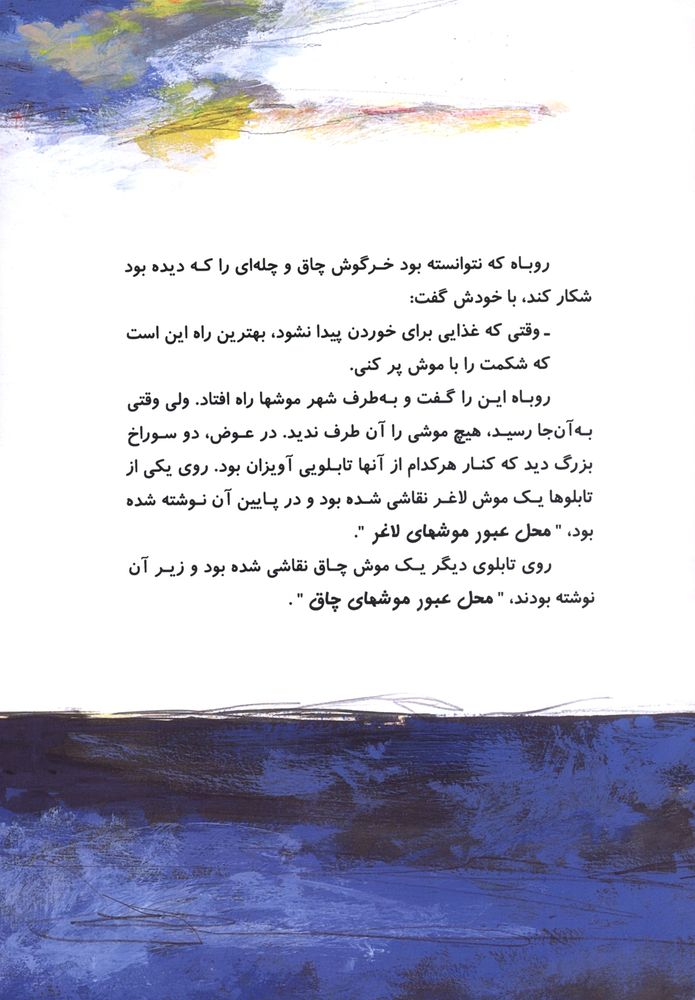 روباه که نتوانسته بود خرگوش چاق و چله‌ای را که دیده بود
شکار کند، با خودش گفت:
ـ وقتی که غذایی برای خوردن پیدا نشود، بهترین راه این است
که شکمت را با موش پر کنی.
روباه این را گفت و به‌طرف شهر موشها راه افتاد. ولی وقتی
به‌آن‌جا رسید، هیچ موشی را آن طرف ندید. در عوض، دو سوراخ
بزرگ دید که کنار هرکدام از آنها تابلویی آویزان بود. روی یکی از
تابلوها یک موش لاغر نقاشی شده بود و در پایین آن نوشته شده
بود، " محل عبور موشهای لاغر ".
روی تابلوی دیگر یک موش چاق نقاشی شده بود و زیر آن
نوشته بودند، " محل عبور موشهای چاق " .